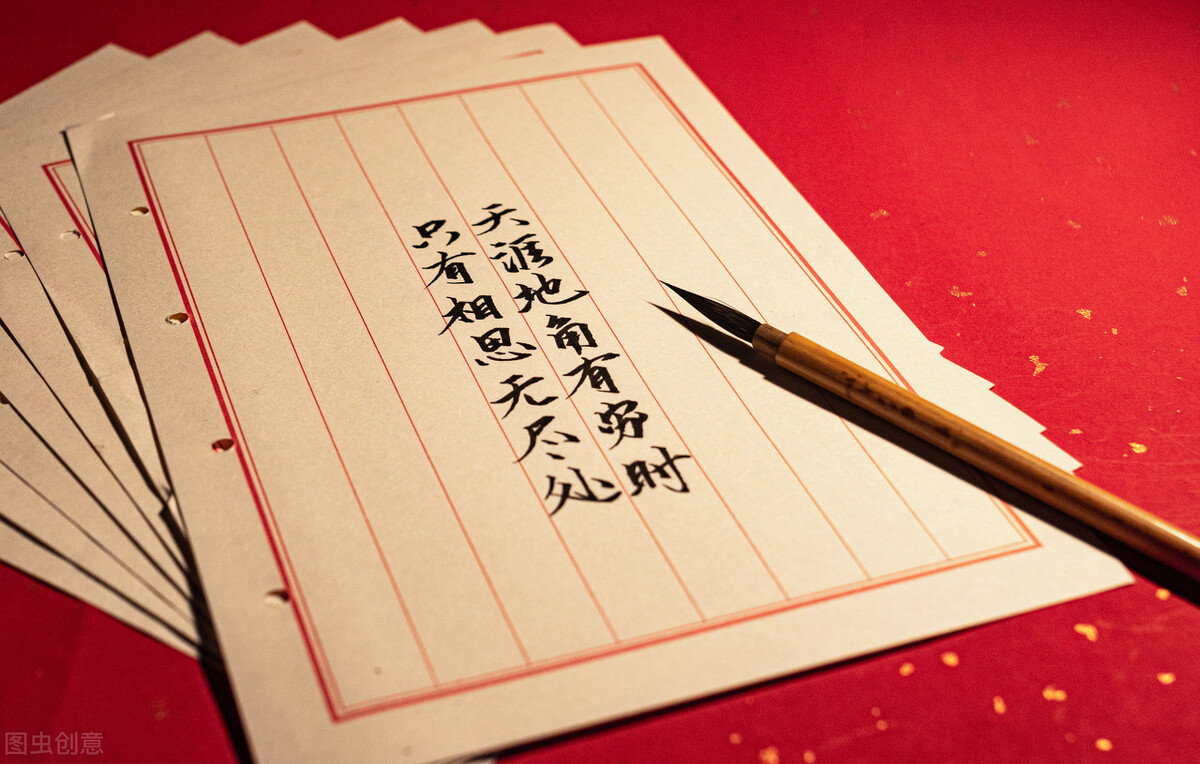 天涯地角有穷时
只有相思无尽处
图虫创意